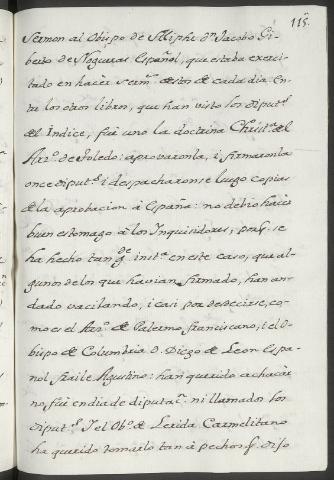 115.
Sermon al Obispo de Aliphe Dn Jacobo Gi-
berto de Nogueras Español, que estaba exerci-
tado en hacèr serms. destos de cada dia. En-
tre los otros libros, que han visto los diputs.
del Indice, fuè uno la doctrina Christna. del
Arzo. de Toledo: aprovaronla, i firmaronla
once diputs. i despacharonse luego copias
de la aprobacion à España: no debio hacèr
buen estomago à los Inquisidores, pues se
ha hecho tan gde. insta. en este caso, que al-
gunos de los que havian firmado, han an-
dado vacilando, i casi por desdecirse, co-
mo es el Arzo. de Palermo franciscano, i el O-
bispo de Columbria D. Diego de Leon Espa-
ñol fraile Agustino: han querido achacàr
no fuè en dia de diputaon. ni llamados los
diputs. I el Obo. de Lerida Carmelitano
ha querido tomarlo tan à pechos q. dijo